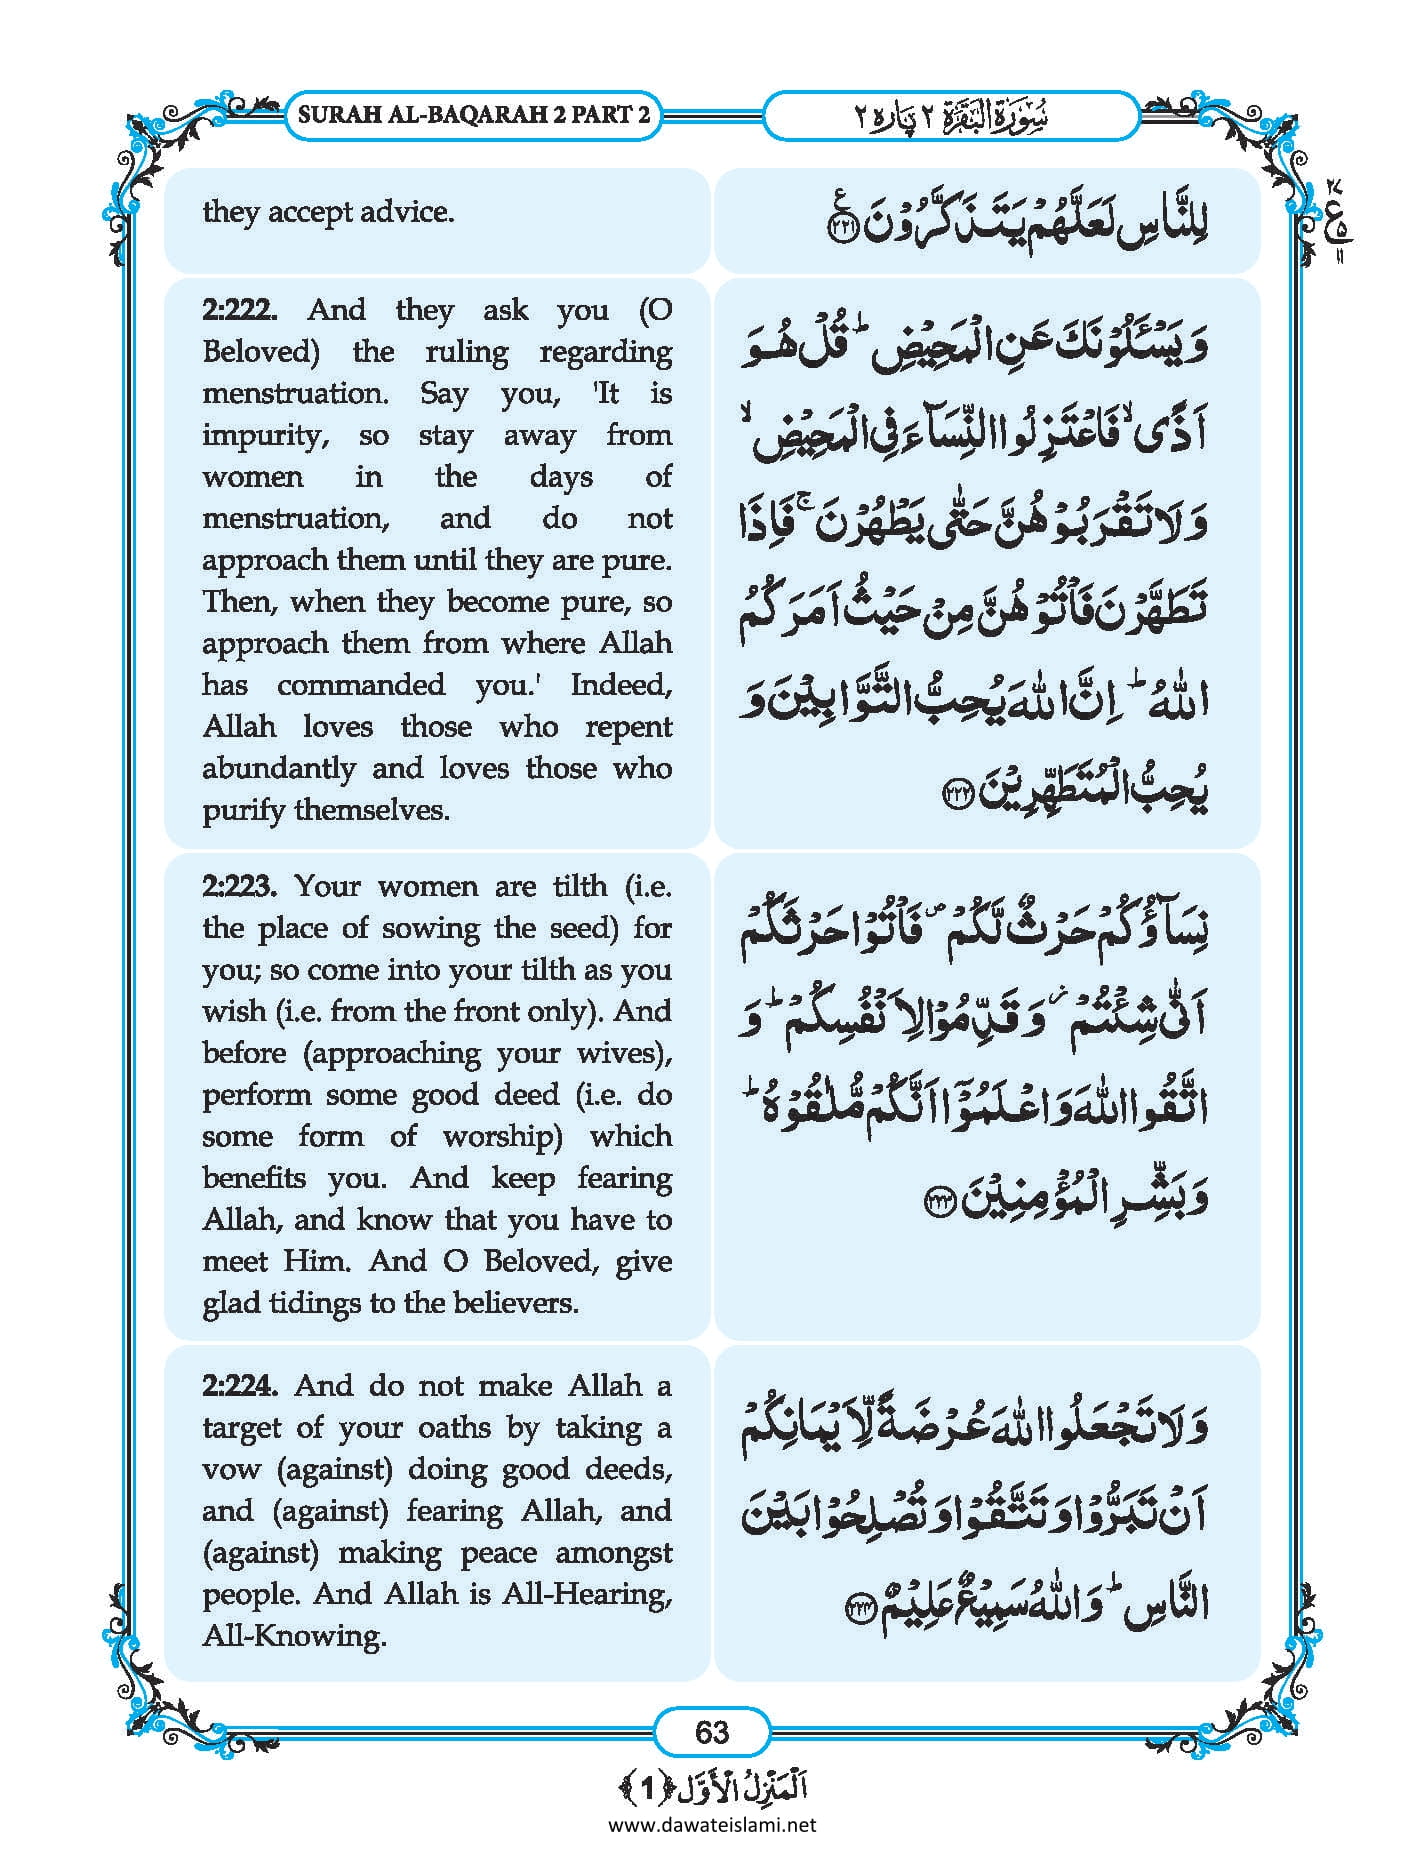 SURAH AL-BAQARAH 2 PART 2
سُوْرَۃُ الْبَقَرَۃِ ۲ پارہ ۲
they accept advice.
لِلنَّاسِ لَعَلَّهُمْ یَتَذَكَّرُوْنَ ﴿۲۲۱﴾ ع
۲۷
ع
۵
۱۱
2:222. And they ask you (O
Beloved) the ruling regarding
menstruation. Say you, 'It is
impurity, so stay away from
women in the days of
menstruation, and do not
approach them until they are pure.
Then, when they become pure, so
approach them from where Allah
has commanded you.' Indeed,
Allah loves those who repent
abundantly and loves those who
purify themselves.
وَ یَسْـَٔلُوْنَكَ عَنِ الْمَحِیْضِ ؕ قُلْ هُوَ
اَذًی ۙ فَاعْتَزِلُوا النِّسَآءَ فِی الْمَحِیْضِ ۙ
وَ لَا تَقْرَبُوْهُنَّ حَتّٰی یَطْهُرْنَ ۚ فَاِذَا
تَطَهَّرْنَ فَاْتُوْهُنَّ مِنْ حَیْثُ اَمَرَكُمُ
اللّٰهُ ؕ اِنَّ اللّٰهَ یُحِبُّ التَّوَّابِیْنَ وَ
یُحِبُّ الْمُتَطَهِّرِیْنَ ﴿۲۲۲﴾
2:223. Your women are tilth (i.e.
the place of sowing the seed) for
you; so come into your tilth as you
wish (i.e. from the front only). And
before (approaching your wives),
perform some good deed (i.e. do
some form of worship) which
benefits you. And keep fearing
Allah, and know that you have to
meet Him. And O Beloved, give
glad tidings to the believers.
نِسَآؤُكُمْ حَرْثٌ لَّكُمْ ۪ فَاْتُوْا حَرْثَكُمْ
اَنّٰی شِئْتُمْ ؗ وَ قَدِّمُوْا لِاَنْفُسِكُمْ ؕ وَ
اتَّقُوا اللّٰهَ وَ اعْلَمُوْۤا اَنَّكُمْ مُّلٰقُوْهُ ؕ
وَ بَشِّرِ الْمُؤْمِنِیْنَ ﴿۲۲۳﴾
2:224. And do not make Allah a
target of your oaths by taking a
vow (against) doing good deeds,
and (against) fearing Allah, and
(against) making peace amongst
people. And Allah is All-Hearing,
All-Knowing.
وَ لَا تَجْعَلُوا اللّٰهَ عُرْضَةً لِّاَیْمَانِكُمْ
اَنْ تَبَرُّوْا وَ تَتَّقُوْا وَ تُصْلِحُوْا بَیْنَ
النَّاسِ ؕ وَ اللّٰهُ سَمِیْعٌ عَلِیْمٌ ﴿۲۲۴﴾
63
اَلْمَنْزِلُ الْاَوَّل ﴿1﴾
www.dawateislami.net